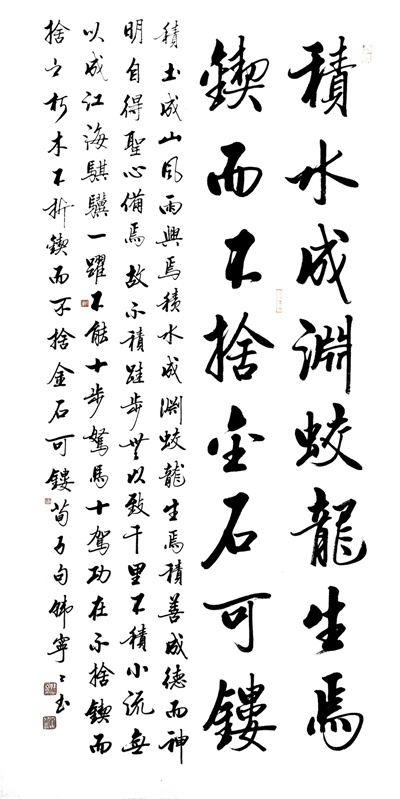 積水成淵蛟龍生焉
鍥而不捨金石可鏤
積土成山風雨興焉積水成淵蛟龍生焉積善成德而神
明自得聖心備焉故不積跬步無以致千里不積小流無
以成江海騏驥一躍不能十步駑馬十駕功在不捨鍥而
捨之朽木不折鍥而不捨金石可鏤荀子句韓寧〻书